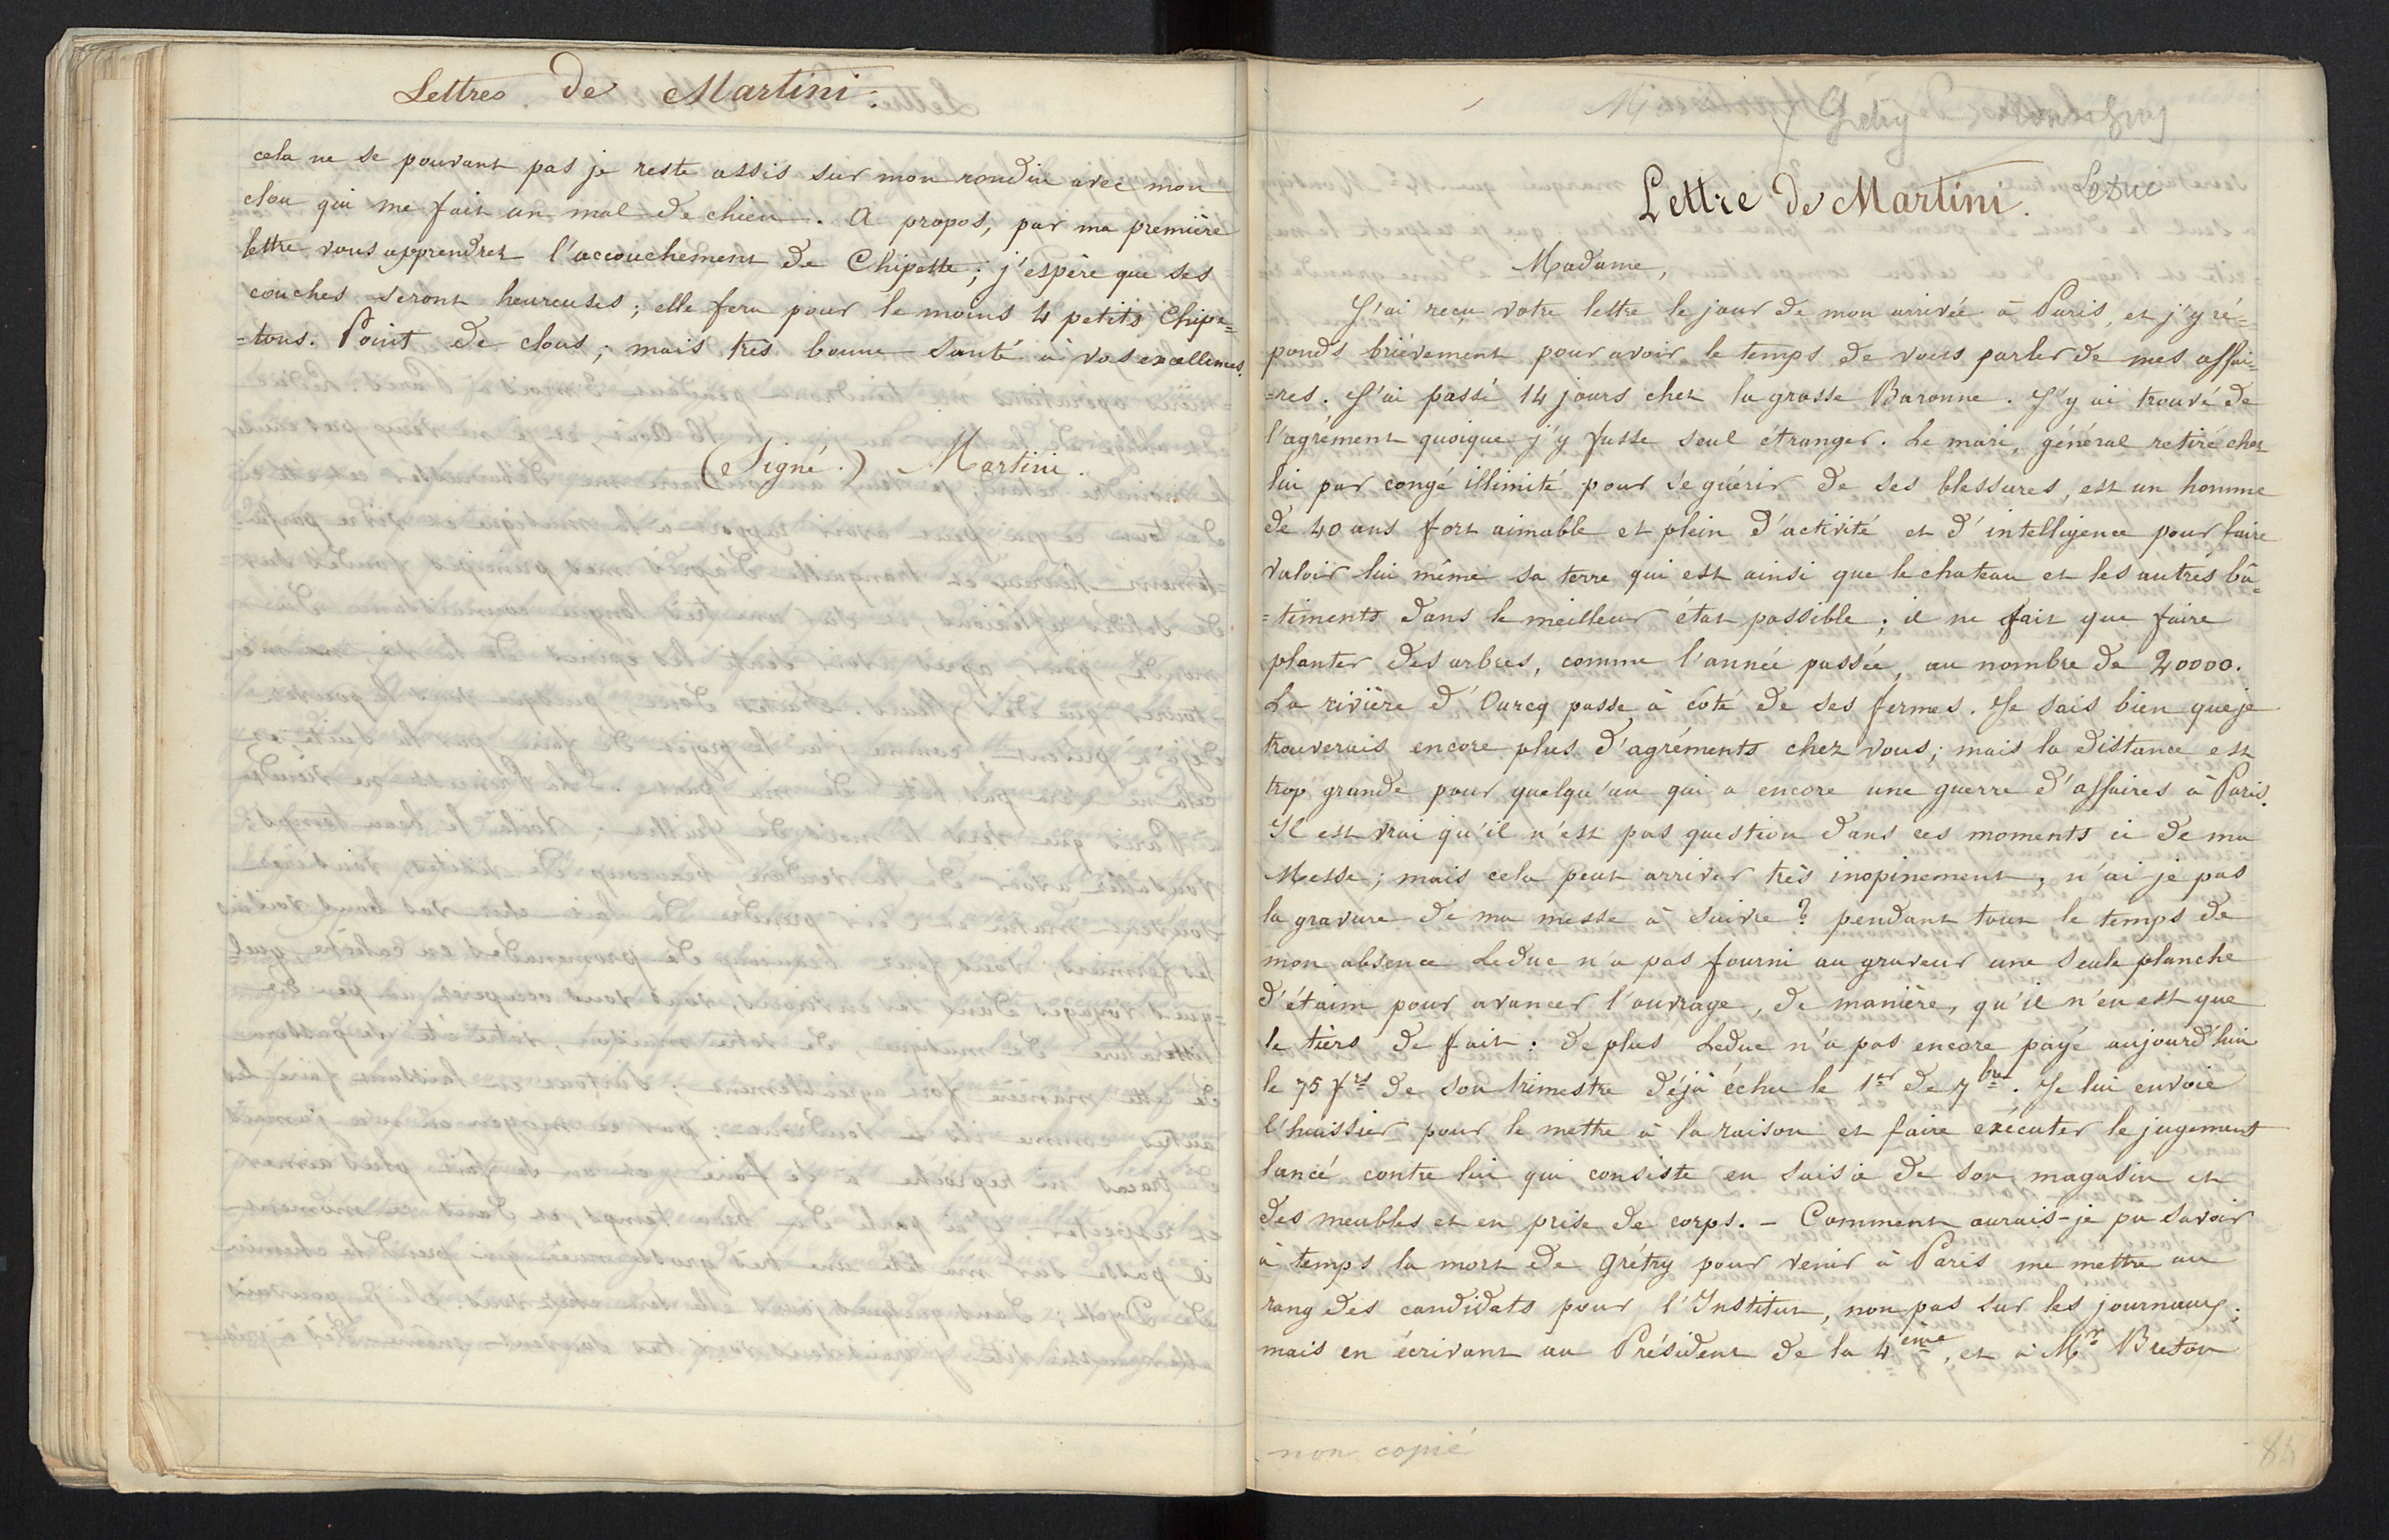 Lettres de Martini.
cela ne se pouvant pas je reste assis sur mon rondin avec mon
clou qui me fait un mal de chien. A propos, par ma première
lettre vous apprendrez l'accouchement de Chipette; j'espère que ses
couches seront heureuses; elle fera pour le moins 4 petits Chipe=
=tons. Point de clous; mais très bonne santé à vos excellences.
(Signé.) Martini.
Grétry
Leduc
Lettre de Martini.
Madame,
J'ai reçu votre lettre le jour de mon arrivée à Paris, et j'y ré=
ponds brièvement pour avoir le temps de vous parler de mes affai=
=res. J'ai passé 14 jours chez la grosse Baronne. J'y ai trouvé de
l'agrément quoique j'y fusse seul étranger. Le mari, général retiré chez
lui par congé illimité pour se guérir de ses blessures, est un homme
de 40 ans fort aimable et plein d'activité et d'intelligence pour faire
valoir lui même sa terre qui est ainsi que le chateau et les autres bâ
=timents dans le meilleur état possible; il ne fait que faire
planter des arbres, comme l'année passée, au nombre de 20000.
La rivière d'Ourcq passe à coté de ses fermes. Je sais bien que je
trouverais encore plus d'agréments chez vous; mais la distance est
trop grande pour quelqu'un qui a encore une guerre d'affaires à Paris.
Il est vrai qu'il n'est pas question dans ces moments ci de ma
Messe; mais cela peut arriver très inopinement, n'ai je pas
la gravure de ma messe à suivre? pendant tout le temps de
mon absence Leduc n'a pas fourni au graveur une seule planche
d'étaim pour avancer l'ouvrage, de manière, qu'il n'en est que
le tiers de fait: de plus Leduc n'a pas encore payé aujourd'hui
le 75 frs de son trimestre déjà échu le 1er de 7bre. Je lui envoie
l'huissier pour le mettre à la raison et faire exécuter le jugement
lancé contre lui qui consiste en saisie de son magasin et
des meubles et en prise de corps. – Comment aurais-je pu savoir
à temps la mort de Grétry pour venir à Paris me mettre au
rang des candidats pour l'Institut, non pas sur les journaux;
mais en écrivant au Président de la 4ème, et à Mr Breton
non copié
84